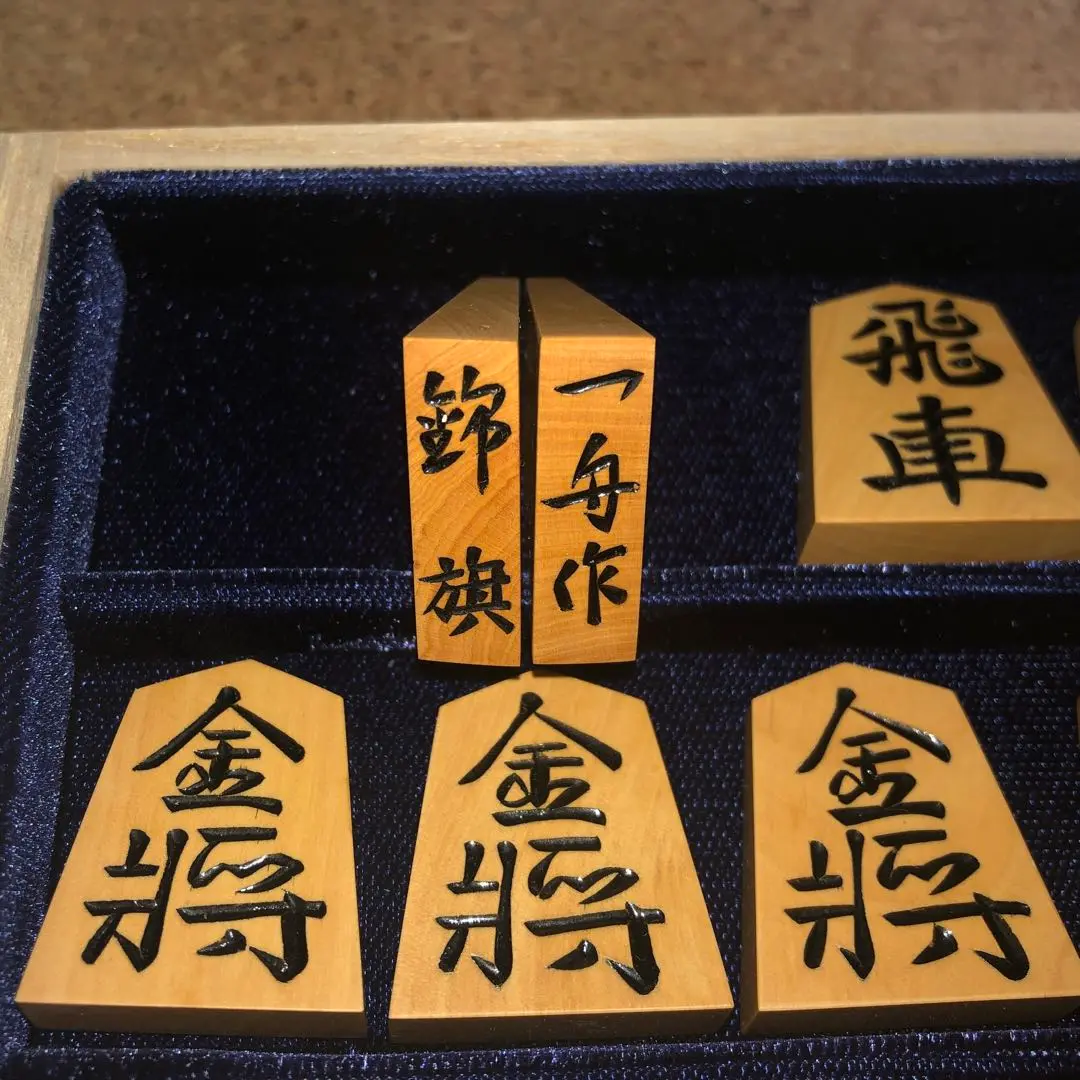 錦旗
一舟作
飛車
金將
金將
金將